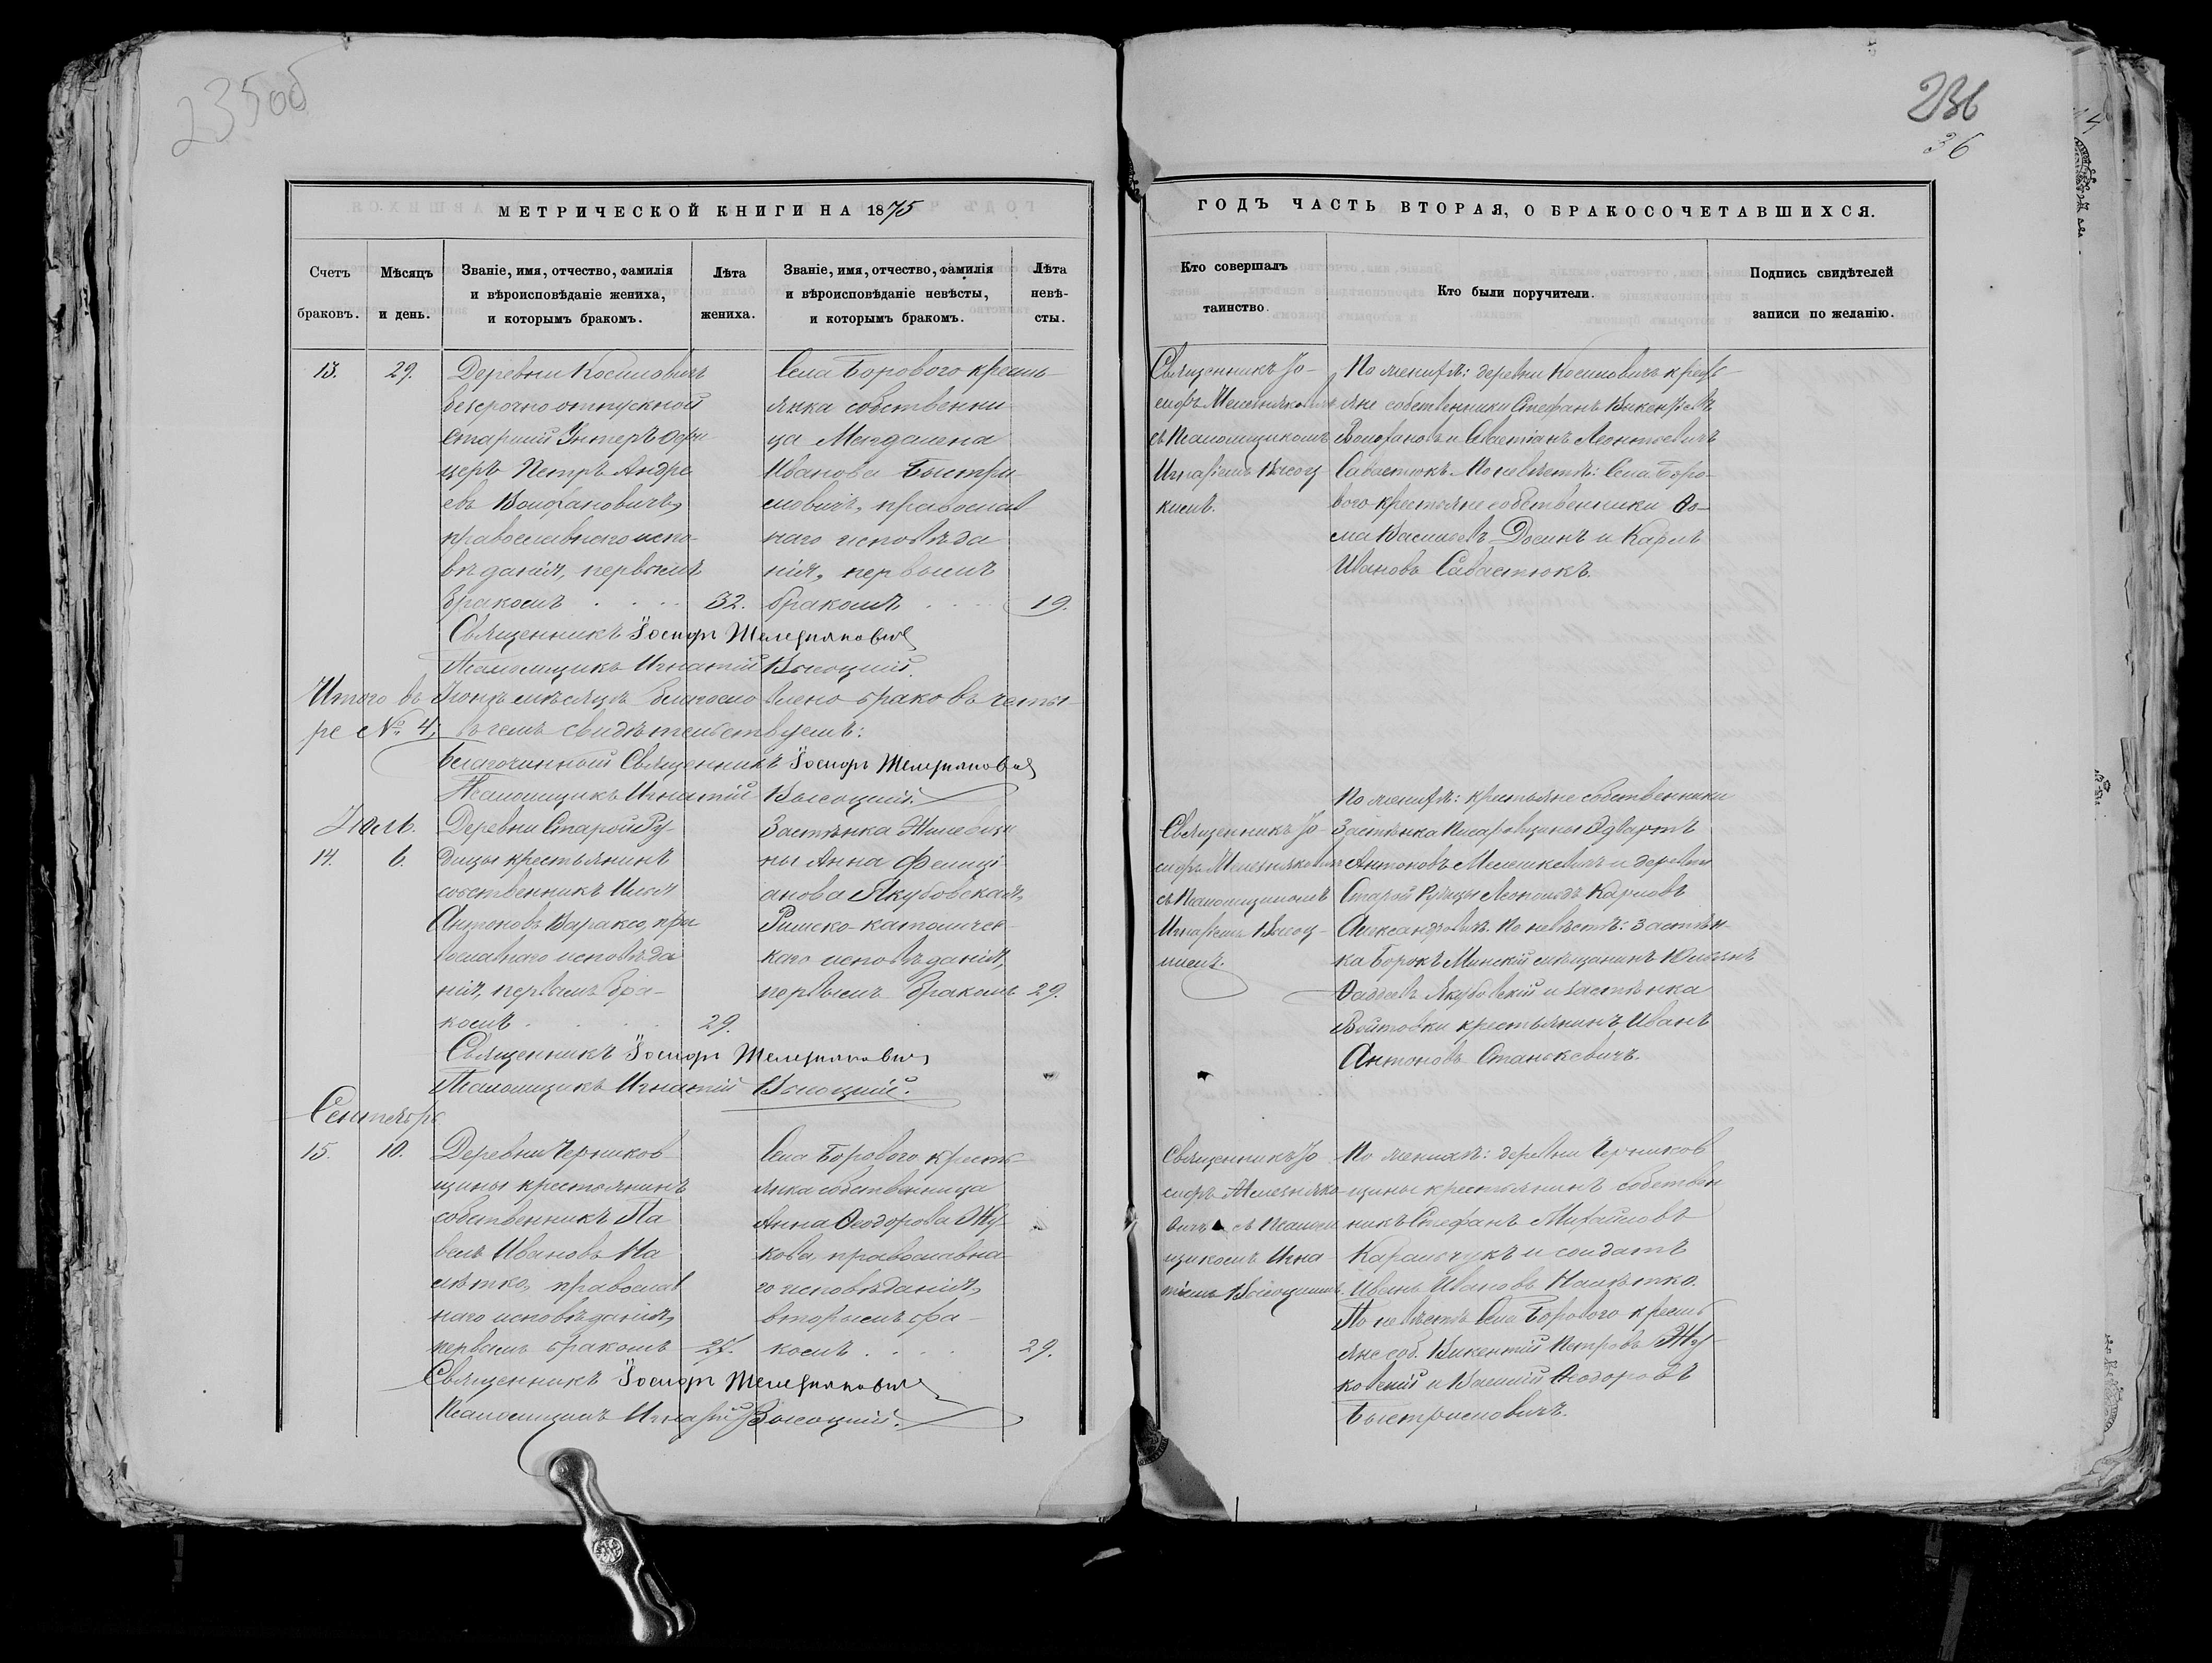 235об
МЕТРИЧЕСКОЙ КНИГИ НА 1875
Счетъ браковъ.
Мѣсяцъ и день.
Званіе, имя, отчество, фамилія
и вѣроисповѣданіе жениха,
и которымъ бракомъ.
Лѣта жениха.
Званіе, имя, отчество, фамилія
и вѣроисповѣданіе невѣсты,
и которымъ бракомъ.
Лѣта
невѣ-
сты.
13.
29.
Деревни
безсрочно отпускной
старшій Унтеръ Офи-
церъ Петръ Андре
евъ
православнаго испо-
вѣданія, первымъ
бракомъ
32.
Села Борового кресть-
янка собственни
ца Магдалена
Иванова Быстри
мовичъ, православ
наго исповѣда
нія, первымъ
бракомъ
19.
Священникъ Іосифъ
Псаломщикъ Игнатій Высоцкій.
Итого въ Іюнѣ мѣсяцѣ благосло влено браковъ четы-
ре № 4, въ чемъ свидѣтельствуемъ:
Благочинный Священникъ Іосифъ
Псаломщикъ Игнатій Высоцкій.
Іюль.
14.
6.
Деревни Старой Ру-
дицы крестьянинъ
собственникъ
АнтоновъВараксо, пра
вославнаго исповѣда
нія, первымъ бра-
комъ
29.
Застѣнка
ны Анна Фелиці
анова Якубовская,
Римско-католичес-
каго исповѣданія,
первымъ бракомъ
29.
Священникъ Іосифъ
Псаломщикъ Игнатій Высоцкій.
Сентябрь
15.
10.
Деревни Черников
щины крестьянинъ
собственникъ Па
велъ Ивановъ На
лѣтко, православ
наго исповѣданія,
первымъ бракомъ
27.
Села Борового кресть-
янка собственница
Анна Ѳеодорова Жу-
кова, православна
го исповѣданія,
вторымъ бра-
комъ
29.
Священникъ Іосифъ
Псаломщикъ Игнатій Высоцкій.
236
36
ГОДЪ ЧАСТЬ ВТОРАЯ, О БРАКОСОЧЕТАВШИХСЯ.
Кто совершалъ
таинство.
Кто были поручители.
Подпись свидѣтелей
записи по желанію.
Священникъ Іо-
сифъ
съ Псаломщикомъ
Игнатіемъ Высоц
кимъ.
По женихѣ: деревни кресть-
яне собственники Стефанъ
и Севастіанъ Леонтьевичъ
Савастюкъ. По невѣстѣ: Села Боро-
вого крестьяне собственники Ѳо-
ма и Карлъ
Ивановъ Савастюкъ.
Священникъ Іо-
сифъ
съ Псаломщикомъ
Игнатіемъ Высоц-
кимъ.
По женихѣ: крестьяне собственники
Застѣнка Эдвартъ
Антоновъ и деревни
Старой Рудицы Леопольдъ Карловъ
Александровичъ. По невѣстѣ: застѣн-
ка Борокъ Минскій мѣщанинъ
Ѳаддеевъ Якубовскій и застѣнка
Войтовки крестьянинъ Иванъ
Антоновъ Станкевичъ.
Священникъ Іо
сифъ
съ Псалом
щикомъ Игна
тіемъ Высоцкимъ.
По женихѣ: деревни Черников
щины крестьянинъ собствен
никъ Стефанъ Михайловъ
и солдатъ
Ивановъ Налѣтко.
По невѣстѣ Села Борового кресть
яне соб. Викентій Петровъ Жу-
ковскій и Василій Ѳеодоровъ
Быстримовичъ.